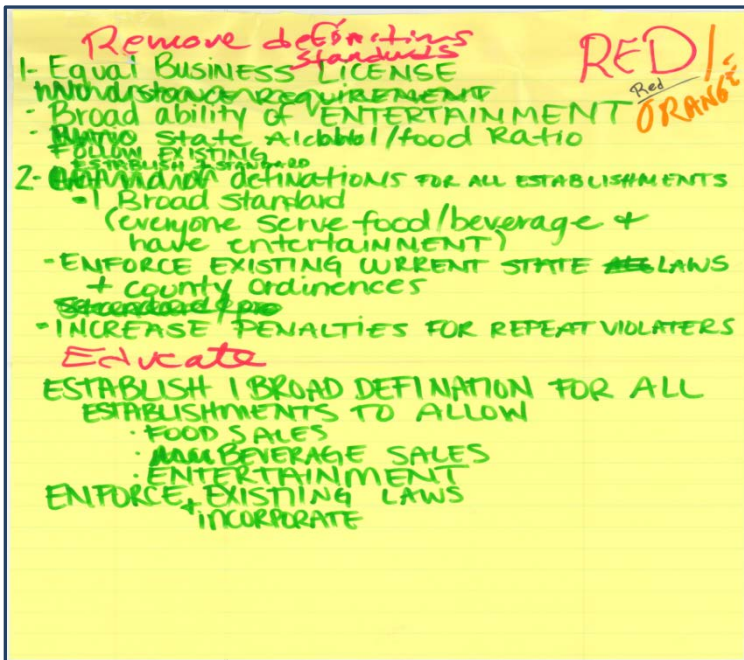 Remove definitions
standards
RED/
Red
ORANGE
1- Equal BUSINESS LICENSE
REQUIREMENT
- Broad ability of ENTERTAINMENT
- State Alcohol/food Ratio
FOLLOW EXISTING
ESTABLISH 1 STANDARD
2- definations FOR ALL ESTABLISHMENTS
-1 Broad Standard
(everyone serve food/beverage +
have entertaiNMENT)
-ENFORCE EXISTING CURRENT STATE LAWS
+ county ordinences
-INCREASE PENALTIES FOR REPEAT VIOLATERS
Educate
ESTABLISH 1 BROAD DEFINATION FOR ALL
ESTABLISHMENTS TO ALLOW
· FOOD SALES
· BEVERAGE SALES
· ENTERTAINMENT
ENFORCE EXISTIING LAWS
+ INCORPORATE